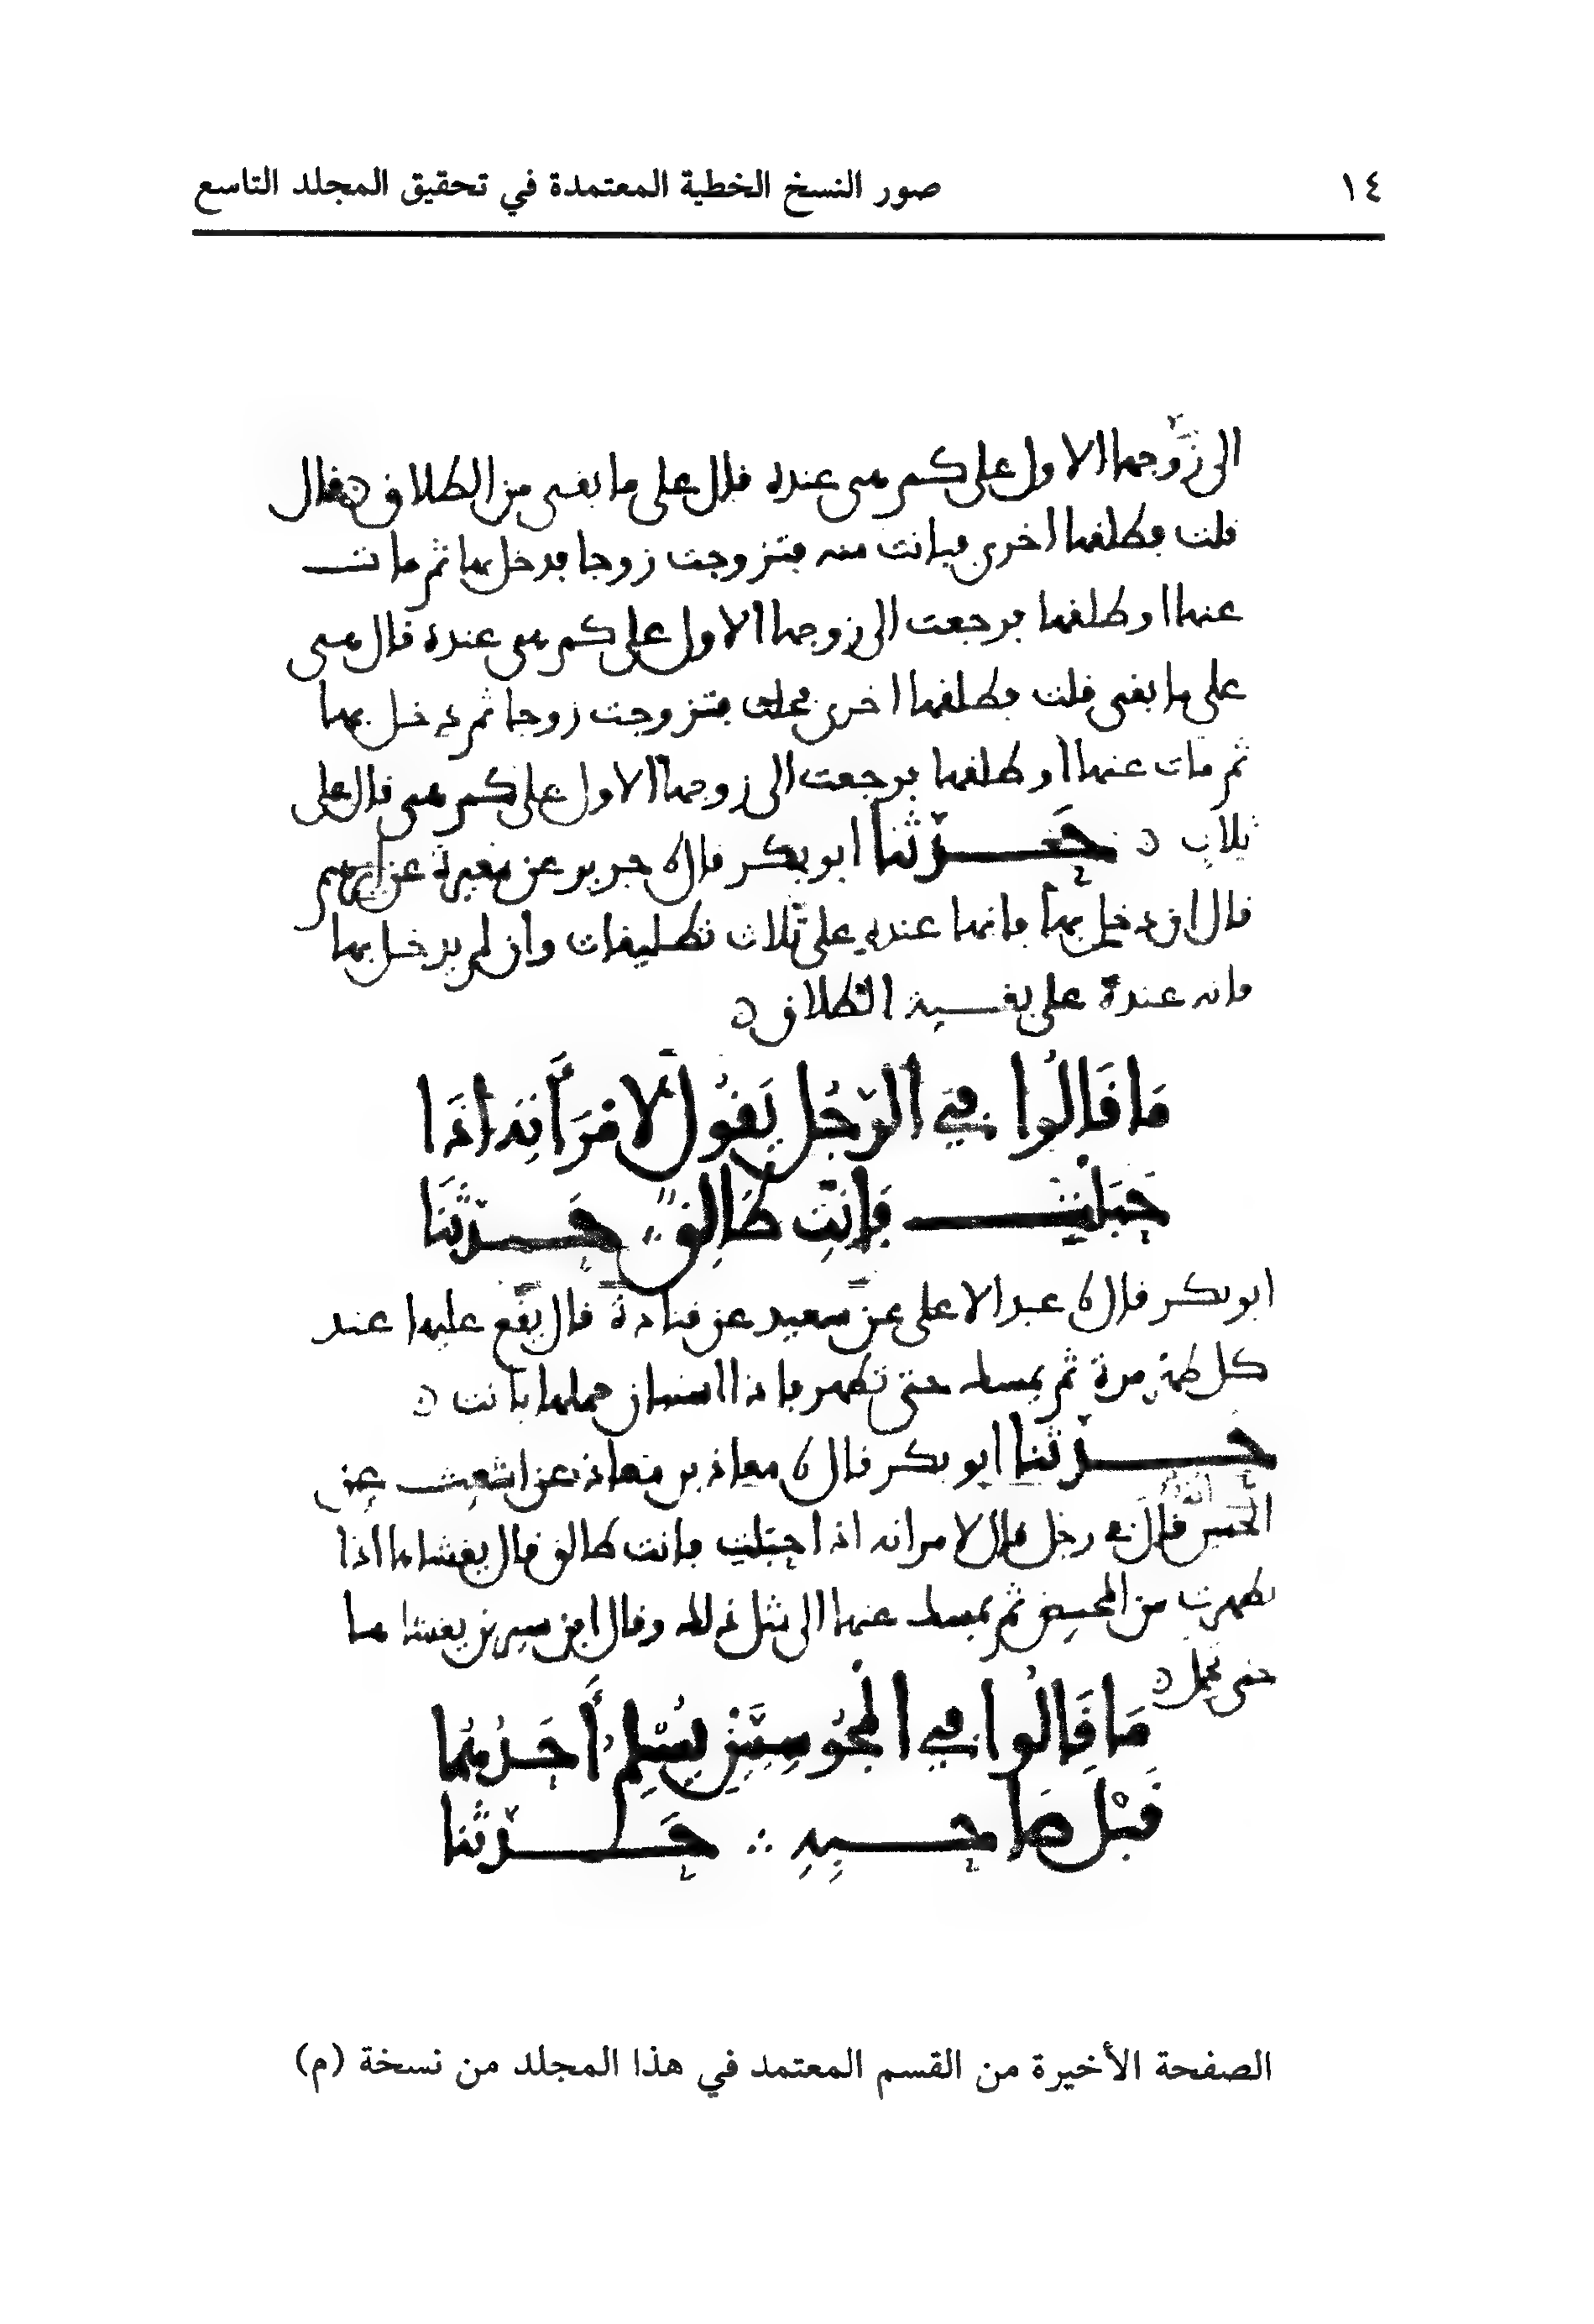 ١٤ صور النسخ الخطية المعتمدة في تحقيق المجلد التاسع
الى زوجها الاول على كم هى عنده قال على ما بقى من الطلاق قال
قلت فطلقها اخرى فبانت منه فتزوجت زوجا فدخل بها ثم مات
عنها او طلقها فرجعت الى زوجها الاول على كم هى عنده قال هى
على ما بقى قلت فطلقها اخرى فحلت فتزوجت زوجا ثم دخل بها
ثم مات عنها او طلقها فرجعت الى زوجها الاول على كم هى قال على
ثلاث حدثنا ابو بكر قال جرير عن مغيرة عن ابرهيم
قال ان دخل بها فانها عنده على ثلاث تطليقات وان لم يدخل بها
فانه عنده على بقية الطلاق
مَا قَالُوا في الرَّجُل يَقُول لامْرَأَتِه اذَا
حَبَلْتِ فَانْتِ طَالِق حَدّثَنَا
ابو بكر قال عبد الاعلى عن سعيد عن قتادة قال يقع عليها عند
كل طهر مرة ثم يمسك حتى تطهر فاذا استبان حملها بانت
حدثنا ابو بكر قال معاذ بن معاذ عن اشعث عن
الحسن قال في رجل قال لامراته اذا حبلت فانت طالق قال يغشاها اذا
تطهرت من المحيض ثم يمسك عنها الى مثل ذلك وقال ابن سيرين يغشاها
حتى تحمل
مَا قَالُوا في المجُوسِيَّيْنِ يُسْلِمُ أَحَدُهُمَا
قَبْل صَاحِبِهِ حَدّثنا
الصفحة الأخيرة من القسم المعتمد في هذا المجلد من نسخة (م)